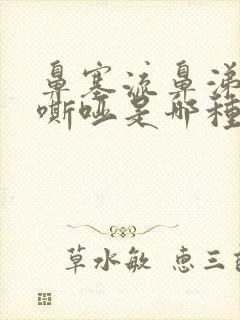 鼻塞流鼻涕
嘶啞是那種
草水敏 惠三